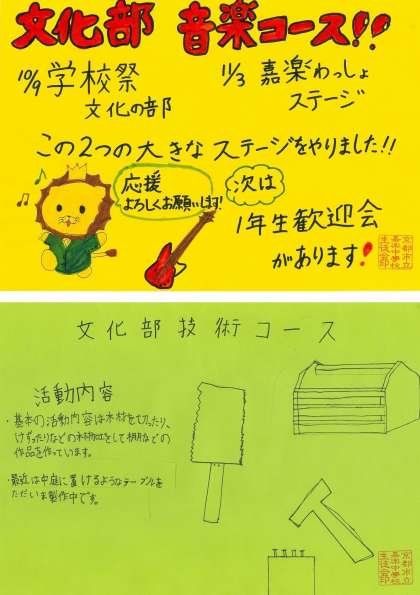 文化部 音楽コース!!
10/9 学校祭
文化の部
11/3 嘉楽わっしょ
ステージ
この2つの大きなステージをやりました!!
応援
よろしくお願いします!
次は
1年生歓迎会
があります!
京都市立
嘉楽中学校
生徒会印
文化部技術コース
活動内容
・基本の活動内容は木材を切ったり、
けずったりなどの木材加工をして棚などの
作品を作っています。
・最近は中庭に置けるようなテーブルを
ただいま製作中です。
京都市立
嘉楽中学校
生徒会印